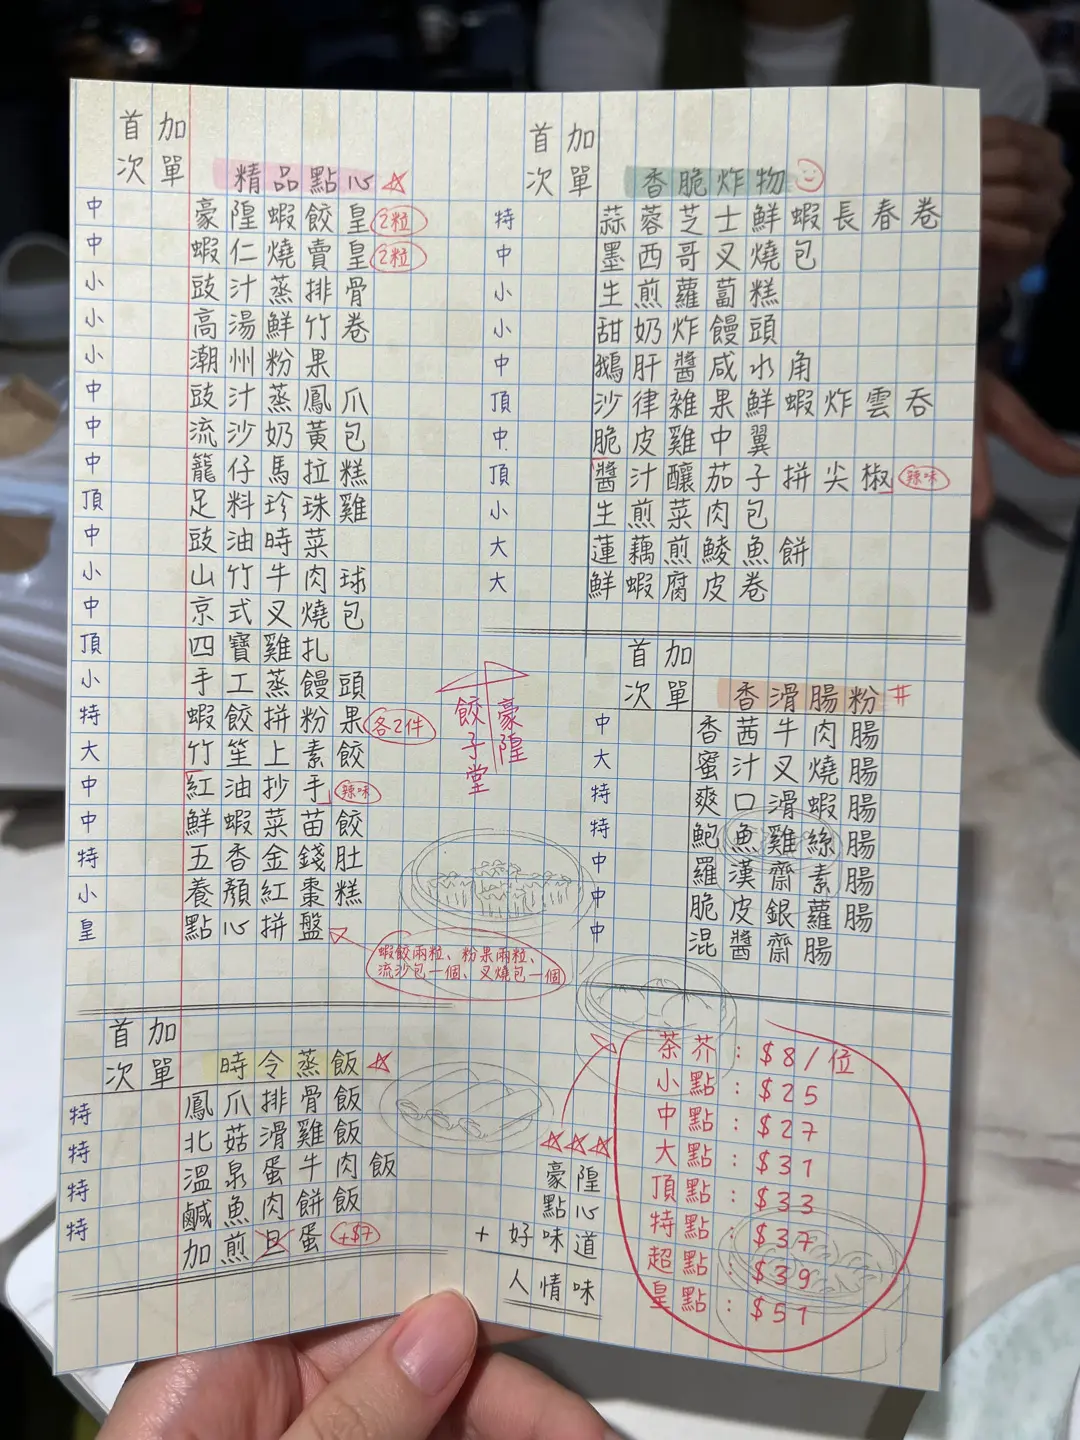 首 加
次 單 精品點心
中 豪隍蝦餃皇 2粒
中 蝦仁燒賣皇 2粒
小 豉汁蒸排骨
小 高湯鮮竹卷
小 潮州粉果
中 豉汁蒸鳳爪
中 流沙奶黃包
中 籠仔馬拉糕
頂 足料珍珠雞
中 豉油時菜
小 山竹牛肉球
中 京式叉燒包
頂 四寶雞扎
小 手工蒸饅頭
特 蝦餃拼粉果 各2件
大 竹笙上素餃
中 紅油抄手 辣味
中 鮮蝦菜苗餃
特 五香金錢肚
小 養顏紅棗糕
皇 點心拼盤
蝦餃兩粒、粉果兩粒、
流沙包一個、叉燒包一個
首 加
次 單 時令蒸飯
特 鳳爪排骨飯
特 北菇滑雞飯
特 溫泉蛋牛肉飯
特 鹹魚肉餅飯
加煎旦蛋 +$7
首 加
次 單 香脆炸物
特 蒜蓉芝士鮮蝦長春卷
中 墨西哥叉燒包
小 生煎蘿蔔糕
小 甜奶炸饅頭
中 鵝肝醬咸水角
頂 沙律雜果鮮蝦炸雲吞
中 脆皮雞中翼
頂 醬汁釀茄子拼尖椒 辣味
小 生煎菜肉包
大 蓮藕煎鯪魚餅
大 鮮蝦腐皮卷
豪隍
餃子堂
首 加
次 單 香滑腸粉 #
中 香茜牛肉腸
大 蜜汁叉燒腸
特 爽口滑蝦腸
特 鮑魚雞絲腸
中 羅漢齋素腸
中 脆皮銀蘿腸
中 混醬齋腸
豪隍
點心
+ 好味道
人情味
茶芥：$8/位
小點：$25
中點：$27
大點：$31
頂點：$33
特點：$37
超點：$39
皇點：$51